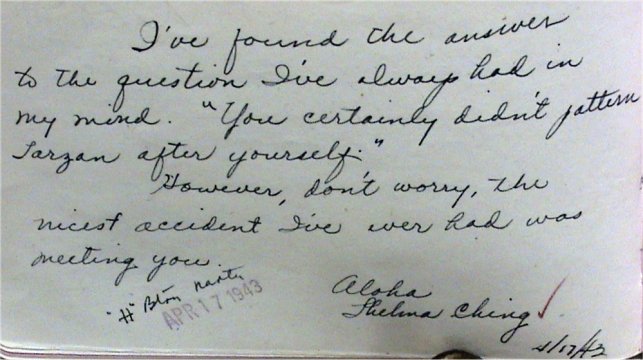 I've found the answer
to the question I've always had in
my mind. "You certainly didn't pattern
Tarzan after yourself."
However, don't worry, the
nicest accident I've ever had was
meeting you.
Aloha
Thelma Ching
"H" Btry
APR 17 1943